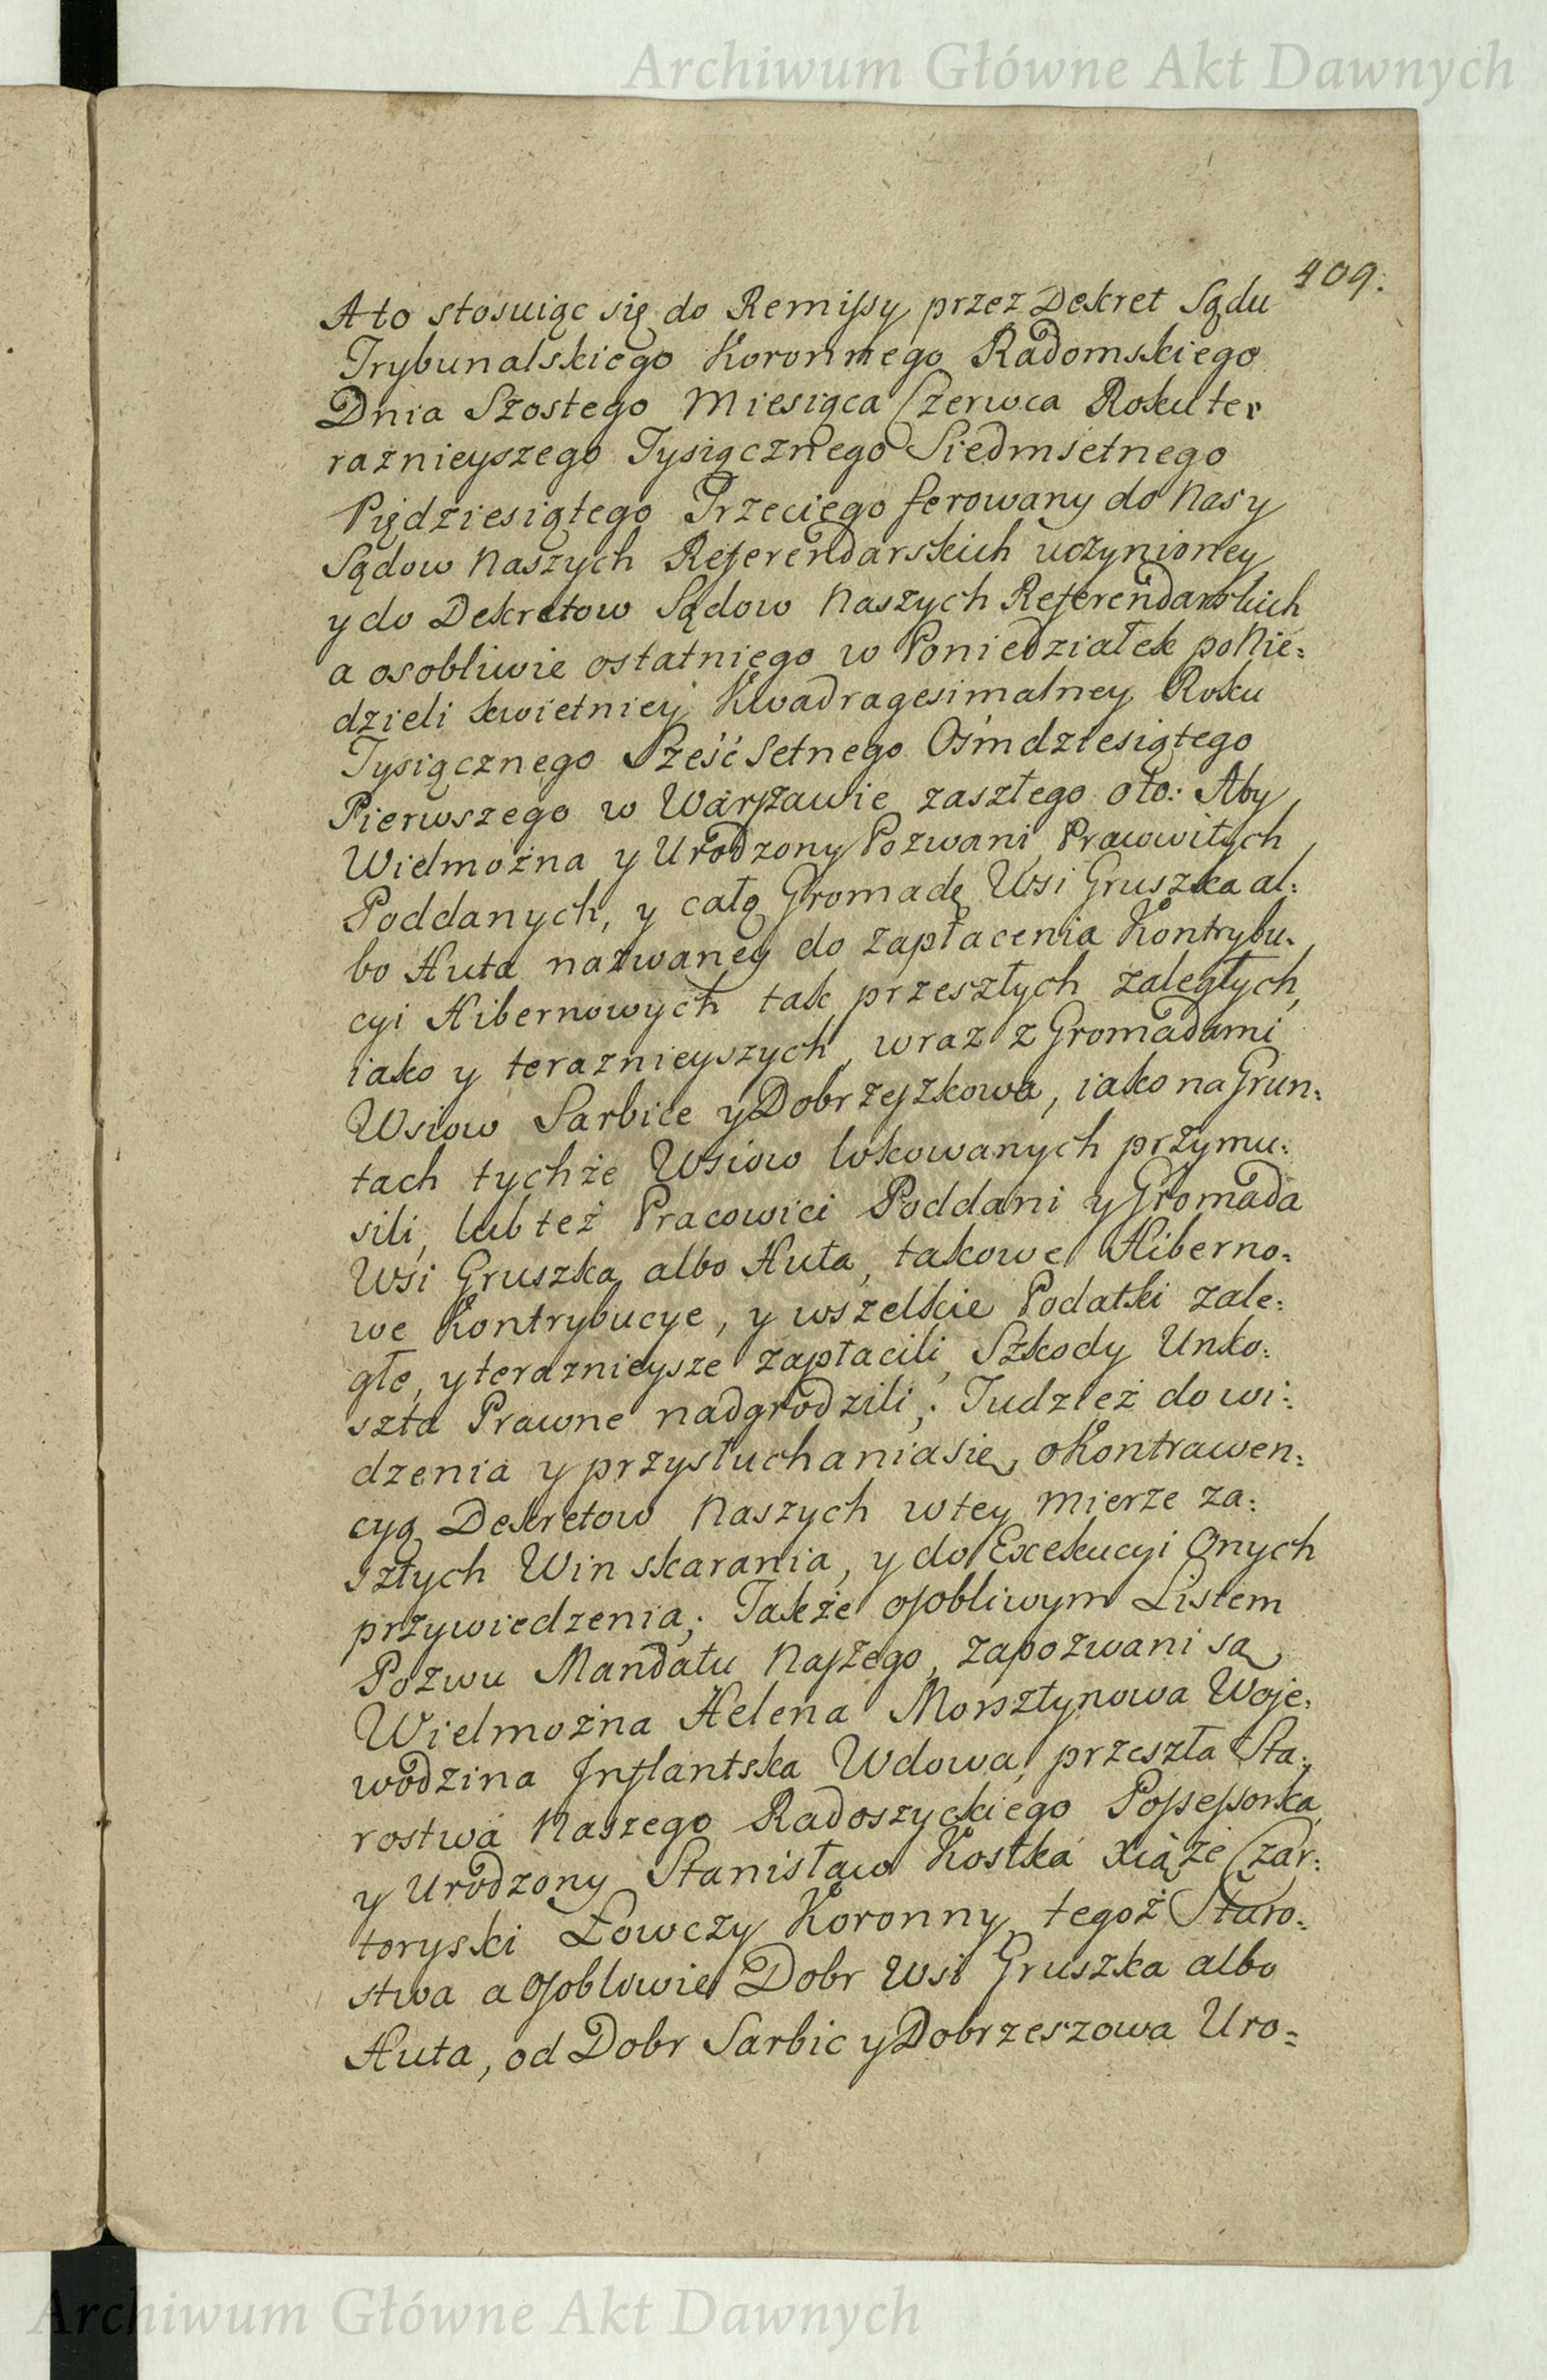 Archiwum Główne Akt Dawnych
409.
A to stosuiąc się do Remissy przez Dekret Sądu
Trybunalskiego Koronnego Radomskiego
Dnia Szostego Miesiąca Czerwca Roku te:
raznieyszego Tysiącznego Siedmsetnego
Piędziesiątego Trzeciego ferowany do Nas y
Sądow Naszych Referendarskich uczynioney
y do Dekretow Sądow Naszych Referendarskich
a osobliwie ostatniego w Poniedziałek po Nie:
dzieli kwietniey Kwadragesimalney Roku
Tysiącznego Sześć Setnego Ośmdziesiątego
Pierwszego w Warszawie zaszłego oto: Aby
Wielmożna y Urodzony Pozwani, Prawowitych
Poddanych, y całą Gromadę Wsi Gruszka al:
bo Huta nazwaney do zapłacenia Kontrybu:
cyi Hibernowych tak przeszłych zaległych,
iako y teraznieyszych, wraz z Gromadami
Wsiow Sarbice y Dobrzeszkowa, iako na Grun:
tach tychże Wsiow lokowanych przymu:
sili, lub też Pracowici Poddani y Gromada
Wsi Gruszka albo Huta, takowe Hiberno:
we Kontrybucye, y wszelkie Podatki zale:
głe, y teraznieysze zapłacili, Szkody Unko:
szta Prawne nadgrodzili; Tudzież do wi:
dzenia y przysłuchania się, o Kontrawen:
cyą Dekretow Naszych w tey mierze za:
szłych Win skarania, y do Exekucyi Onych
przywiedzenia; Także osobliwym Listem
Pozwu Mandatu Naszego, zapozwani są
Wielmożna Helena Morsztynowa Woje:
wodzina Inflantska Wdowa, przeszła Sta:
rostwa Naszego Radoszyckiego Possessorka
y Urodzony Stanisław Kostka Xiąże Czar:
toryski Łowczy Koronny, tegoż Staro:
stwa a osobliwie Dobr Wsi Gruszka albo
Huta, od Dobr Sarbic y Dobrzeszowa Uro:
Archiwum Główne Akt Dawnych